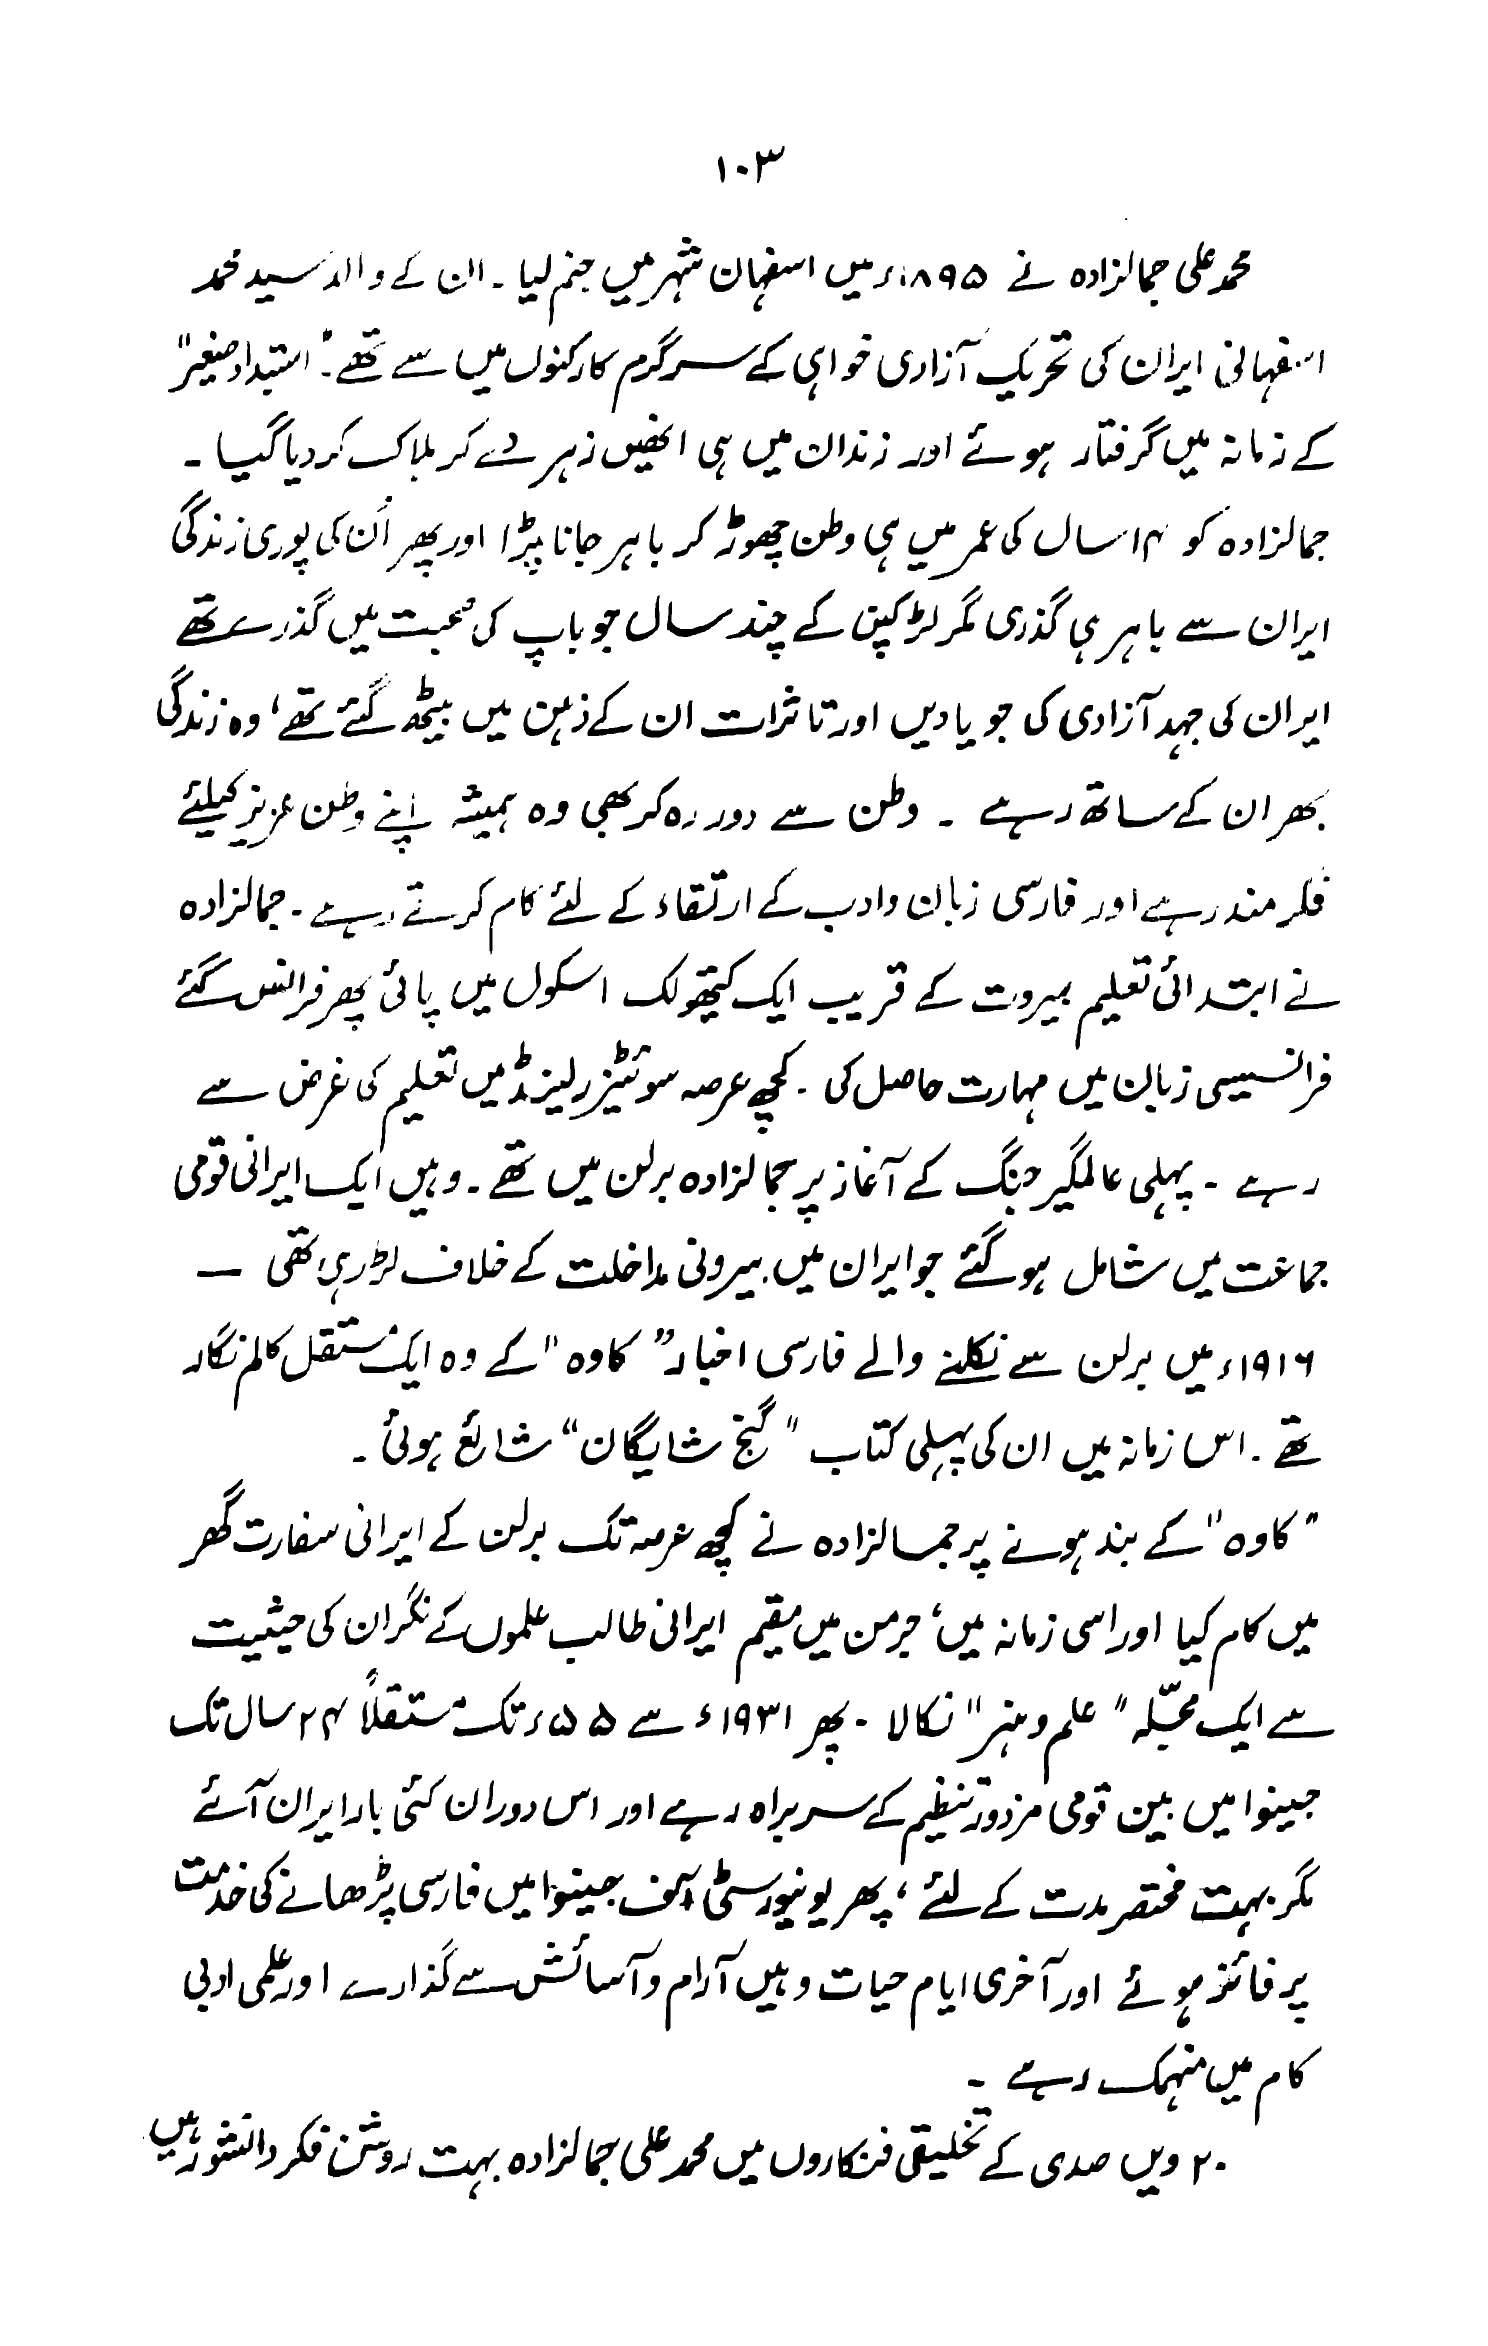 ۱۰۳
محمد علی جمالزادہ نے ۱۸۹۵ء میں اسفہان شہر میں جنم لیا۔ ان کے والد سید محمد
اسفہانی ایران کی تحریک آزادی خواہی کے سرگرم کارکنوں میں سے تھے۔ "استبداد صغیر"
کے زمانہ میں گرفتار ہوئے اور زندان میں ہی انھیں زہر دے کر ہلاک کر دیا گیا۔
جمالزادہ کو ۱۴ سال کی عمر میں ہی وطن چھوڑ کر باہر جانا پڑا اور پھر اُن کی پوری زندگی
ایران سے باہر ہی گذری مگر لڑکپن کے چند سال جو باپ کی صحبت میں گذرے تھے
ایران کی جہد آزادی کی جو یادیں اور تاثرات ان کے ذہن میں بیٹھ گئے تھے، وہ زندگی
بھر ان کے ساتھ رہے ۔ وطن سے دور رہ کر بھی وہ ہمیشہ اپنے وطن عزیز کیلئے
فکر مند رہے اور فارسی زبان و ادب کے ارتقاء کے لئے کام کرتے رہے ۔ جمالزادہ
نے ابتدائی تعلیم بیروت کے قریب ایک کیتھولک اسکول میں پائی پھر فرانس گئے
فرانسیسی زبان میں مہارت حاصل کی ۔ کچھ عرصہ سوئٹیزرلینڈ میں تعلیم کی غرض سے
رہے ۔ پہلی عالمگیر جنگ کے آغاز پر جمالزادہ برلن میں تھے ۔ وہیں ایک ایرانی قومی
جماعت میں شامل ہو گئے جو ایران میں بیرونی مداخلت کے خلاف لڑ رہی تھی —
۱۹۱۶ء میں برلن سے نکلنے والے فارسی اخبار "کاوہ" کے وہ ایک مستقل کالم نگار
تھے ۔ اس زمانہ میں ان کی پہلی کتاب "گنج شایگان" شائع ہوئی ۔
"کاوہ" کے بند ہونے پر جمالزادہ نے کچھ عرصہ تک برلن کے ایرانی سفارت گھر
میں کام کیا اور اسی زمانہ میں، جرمن میں مقیم ایرانی طالب علموں کے نگران کی حیثیت
سے ایک مجلّہ "علم و ہنر" نکالا ۔ پھر ۱۹۳۱ء سے ۵۵ء تک مستقلاً ۲۴ سال تک
جینوا میں بین قومی مزدور تنظیم کے سربراہ رہے اور اس دوران کئی بار ایران آئے
مگر بہت مختصر مدت کے لئے، پھر یونیورسٹی آف جینوا میں فارسی پڑھانے کی خدمت
پر فائز ہوئے اور آخری ایام حیات وہیں آرام و آسائش سے گذارے اور علمی ادبی
کام میں منہمک رہے ۔
۲۰ ویں صدی کے تخلیقی فنکاروں میں محمد علی جمالزادہ بہت روشن فکر دانشور ہیں